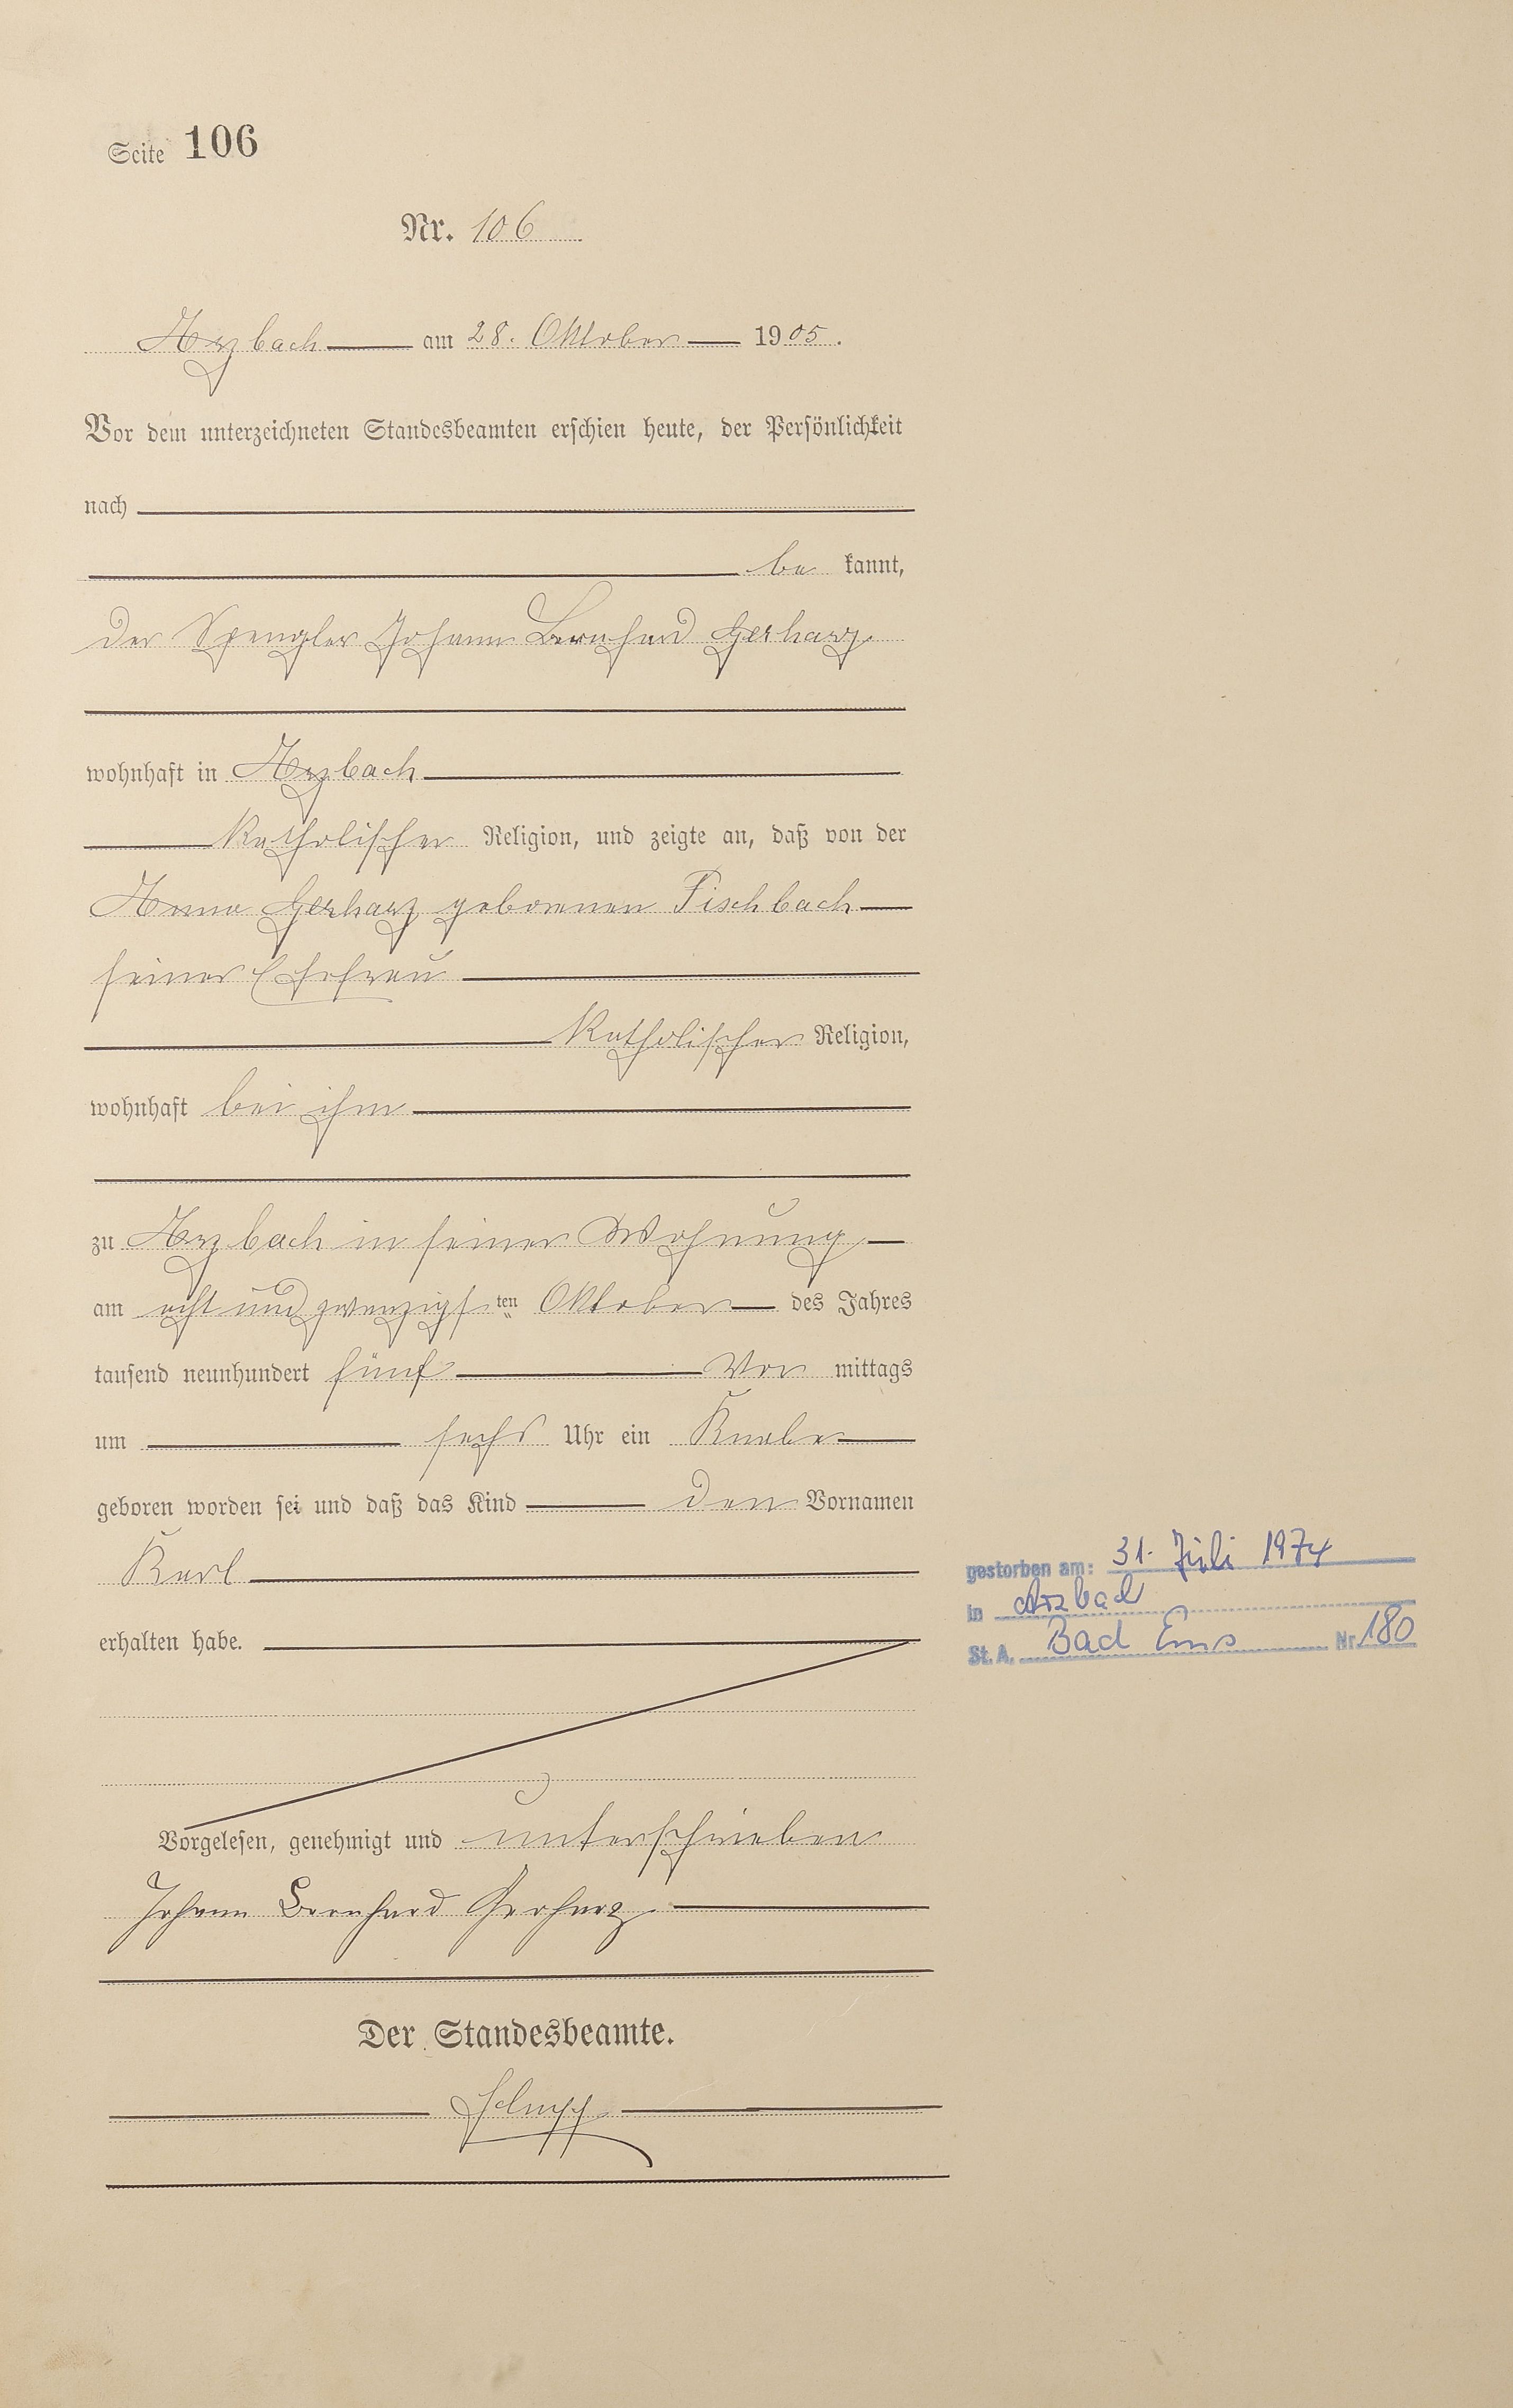 Seite 106
Nr. 106
Arzbach am 28. Oktober 1905.
Vor dem unterzeichneten Standesbeamten erschien heute, der Persönlichkeit
nach
be kannt,
der Spengler Johann Bernhard Gerharz
wohnhaft in Arzbach
katholischer Religion, und zeigte an, daß von der
Anna Gerharz geborenen Fischbach
seiner Ehefrau
katholischer Religion,
wohnhaft bei ihm
zu Arzbach in seiner Wohnung
am acht und zwanzigsten Oktober des Jahres
tausend neunhundert fünf Vor mittags
um sechs Uhr ein Knabe
geboren worden sei und daß das Kind den Vornamen
Karl
erhalten habe.
gestorben am: 31. Juli 1974
in Arzbach
St. A. Bad Ems Nr. 180
Vorgelesen, genehmigt und unterschrieben
Johann Bernhard Gerharz
Der Standesbeamte.